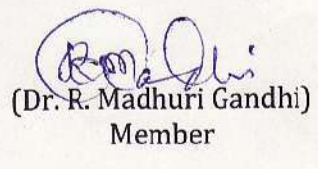 (Dr. R. Madhuri Gandhi)
Member